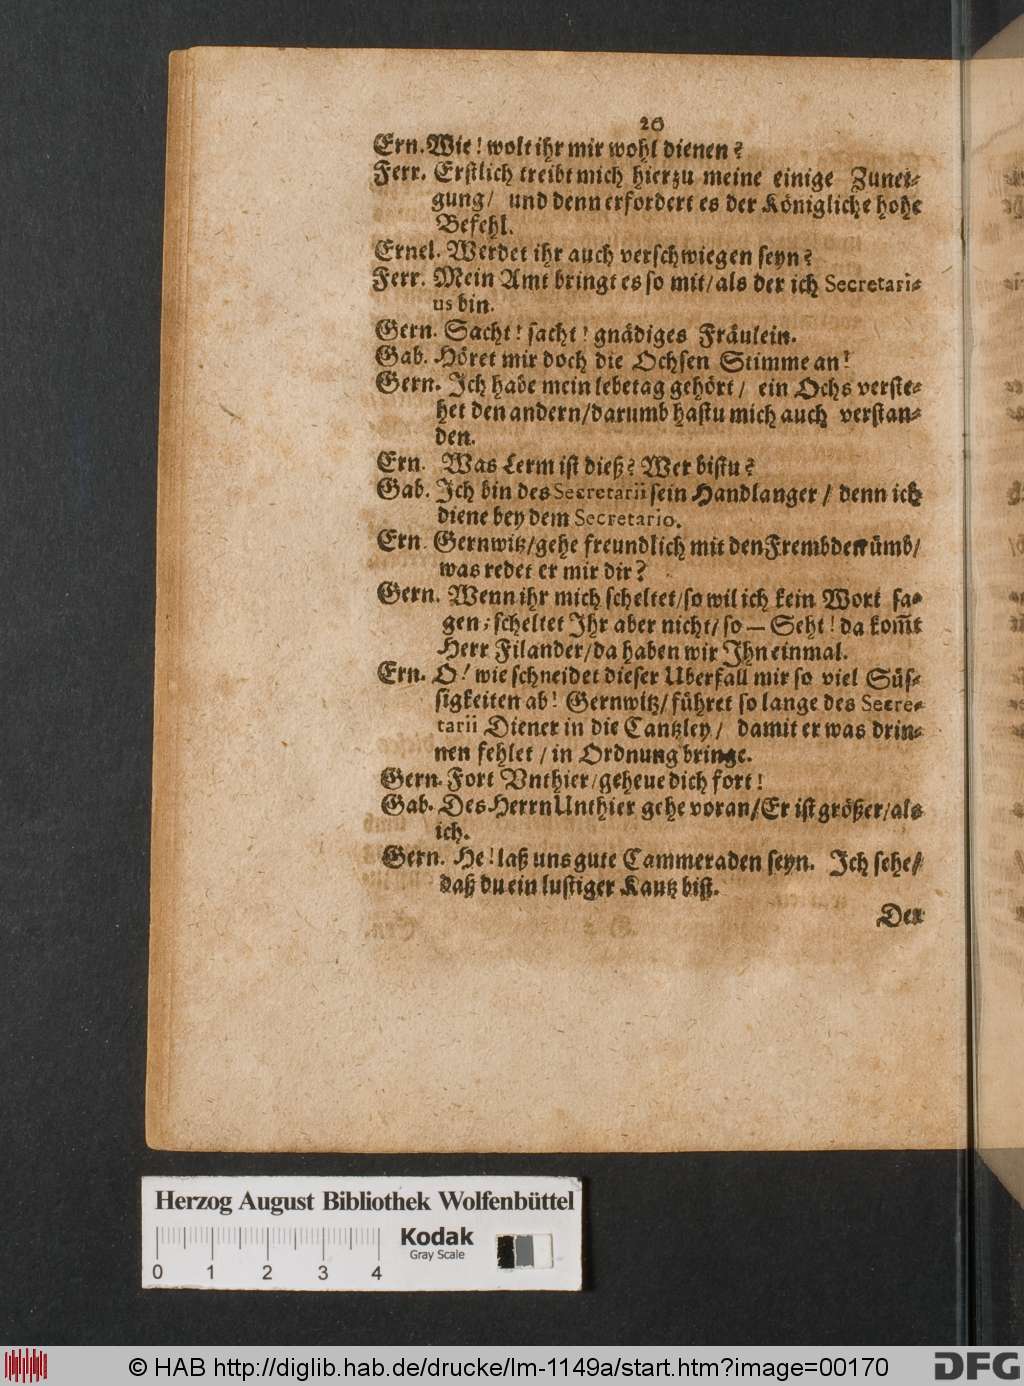 20
Ern. Wie! wolt ihr mir wohl dienen?
Ferr. Erstlich treibt mich hierzu meine einige Zunei-
gung/ und denn erfordert es der Königliche hohe
Befehl.
Ernel. Werdet ihr auch verschwiegen seyn?
Ferr. Mein Amt bringt es so mit/ als der ich Secretari-
us bin.
Gern. Sacht! sacht! gnädiges Fräulein.
Gab. Höret mir doch die Ochsen Stimme an!
Gern. Ich habe mein lebetag gehört/ ein Ochs verste-
het den andern/ darumb hastu mich auch verstan-
den.
Ern. Was Lerm ist dieß? Wer bistu?
Gab. Ich bin des Secretarii sein Handlanger/ denn ich
diene bey dem Secretario.
Ern. Gernwitz/ gehe freundlich mit den Frembden ümb/
was redet er mir dir?
Gern. Wenn ihr mich scheltet/ so wil ich kein Wort sa-
gen; scheltet Ihr aber nicht/ so — Seht! da kom̃t
Herr Filander/ da haben wir Ihn einmal.
Ern. O! wie schneidet dieser Uberfall mir so viel Süs-
sigkeiten ab! Gernwitz/ führet so lange des Secre-
tarii Diener in die Cantzley/ damit er was drin-
nen fehlet/ in Ordnung bringe.
Gern. Fort Unthier/ geheue dich fort!
Gab. Des Herrn Unthier gehe voran/ Er ist größer/ als
ich.
Gern. He! laß uns gute Cammeraden seyn. Ich sehe/
daß du ein lustiger Kautz bist.
Der
Herzog August Bibliothek Wolfenbüttel
Kodak
Gray Scale
0 1 2 3 4
© HAB http://diglib.hab.de/drucke/lm-1149a/start.htm?image=00170
DFG